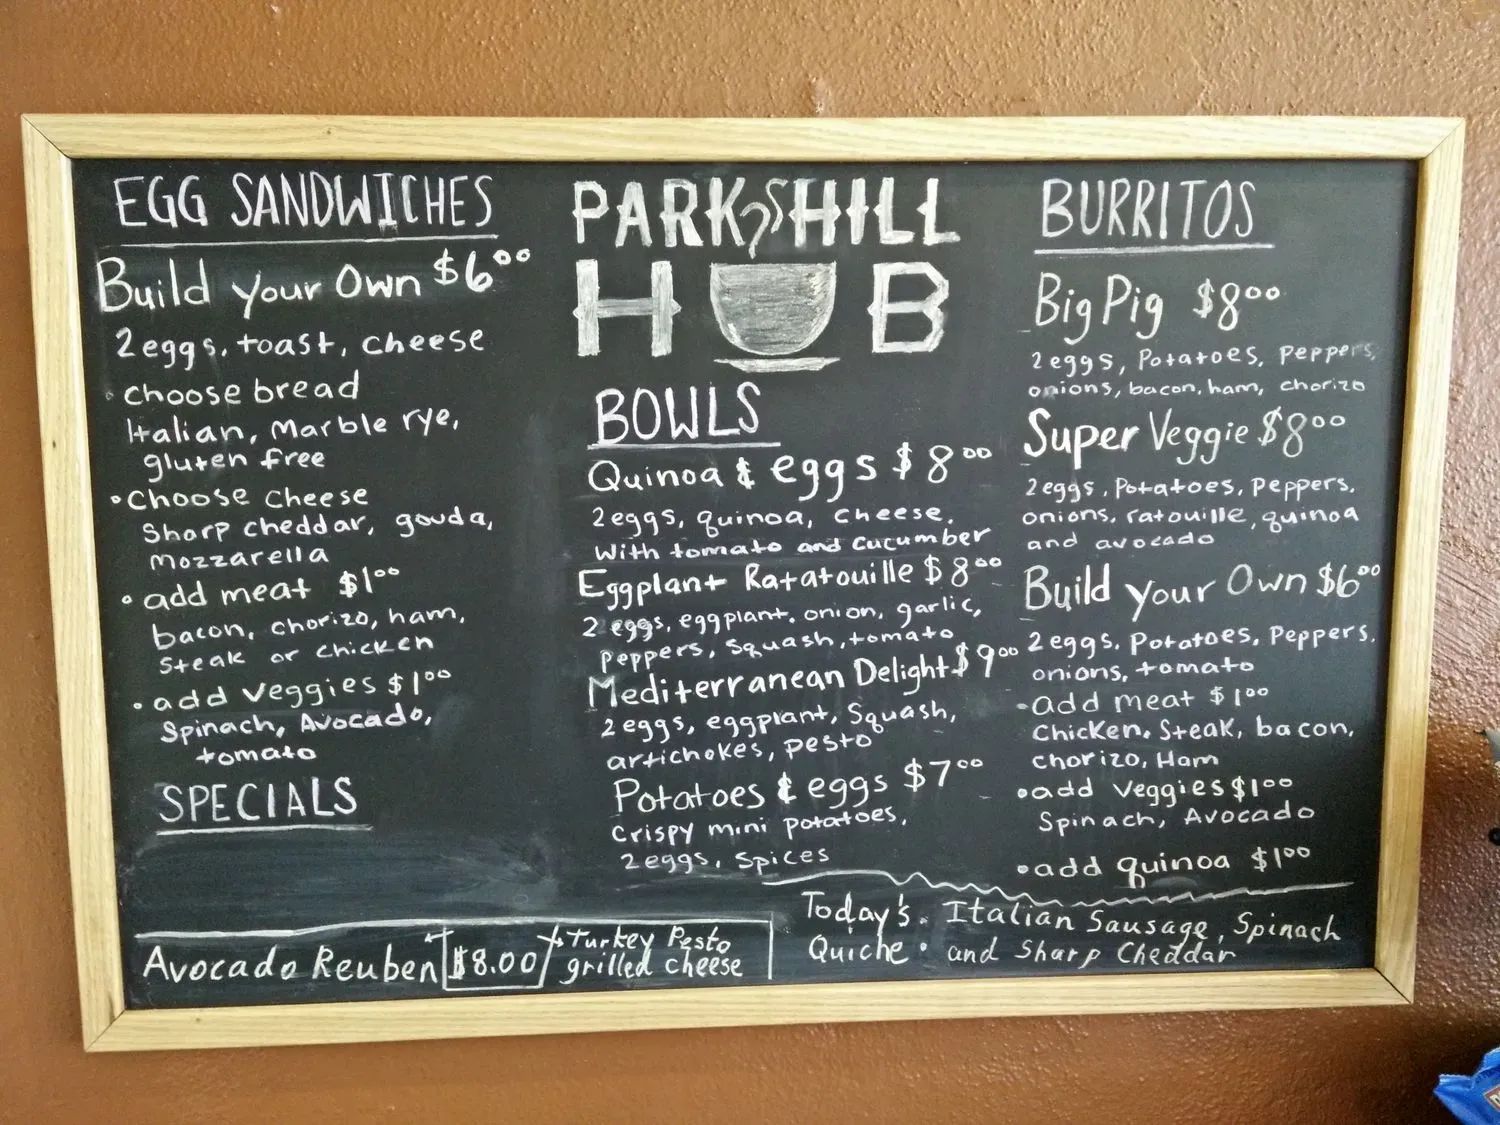 EGG SANDWICHES
Build your Own $6⁰⁰
2 eggs, toast, cheese
• choose bread
Italian, Marble rye,
gluten free
• Choose Cheese
Sharp cheddar, gouda,
Mozzarella
• add meat $1⁰⁰
bacon, chorizo, ham,
Steak or chicken
• add Veggies $1⁰⁰
Spinach, Avocado,
tomato
SPECIALS
Avocado Reuben $8.00 Turkey Pesto
grilled cheese
PARK HILL
HUB
BOWLS
Quinoa & eggs $8⁰⁰
2 eggs, quinoa, cheese,
With tomato and cucumber
Eggplant Ratatouille $8⁰⁰
2 eggs, eggplant, onion, garlic,
peppers, squash, tomato
Mediterranean Delight $9⁰⁰
2 eggs, eggplant, Squash,
artichokes, pesto
Potatoes & eggs $7⁰⁰
Crispy mini potatoes,
2 eggs, Spices
BURRITOS
Big Pig $8⁰⁰
2 eggs, Potatoes, peppers,
onions, bacon, ham, chorizo
Super Veggie $8⁰⁰
2 eggs, Potatoes, Peppers,
onions, ratouille, quinoa
and avocado
Build your Own $6⁰⁰
2 eggs, Potatoes, Peppers,
onions, tomato
• add meat $1⁰⁰
Chicken, Steak, bacon,
chorizo, Ham
• add Veggies $1⁰⁰
Spinach, Avocado
• add quinoa $1⁰⁰
Today's Quiche: Italian Sausage, Spinach
and Sharp Cheddar